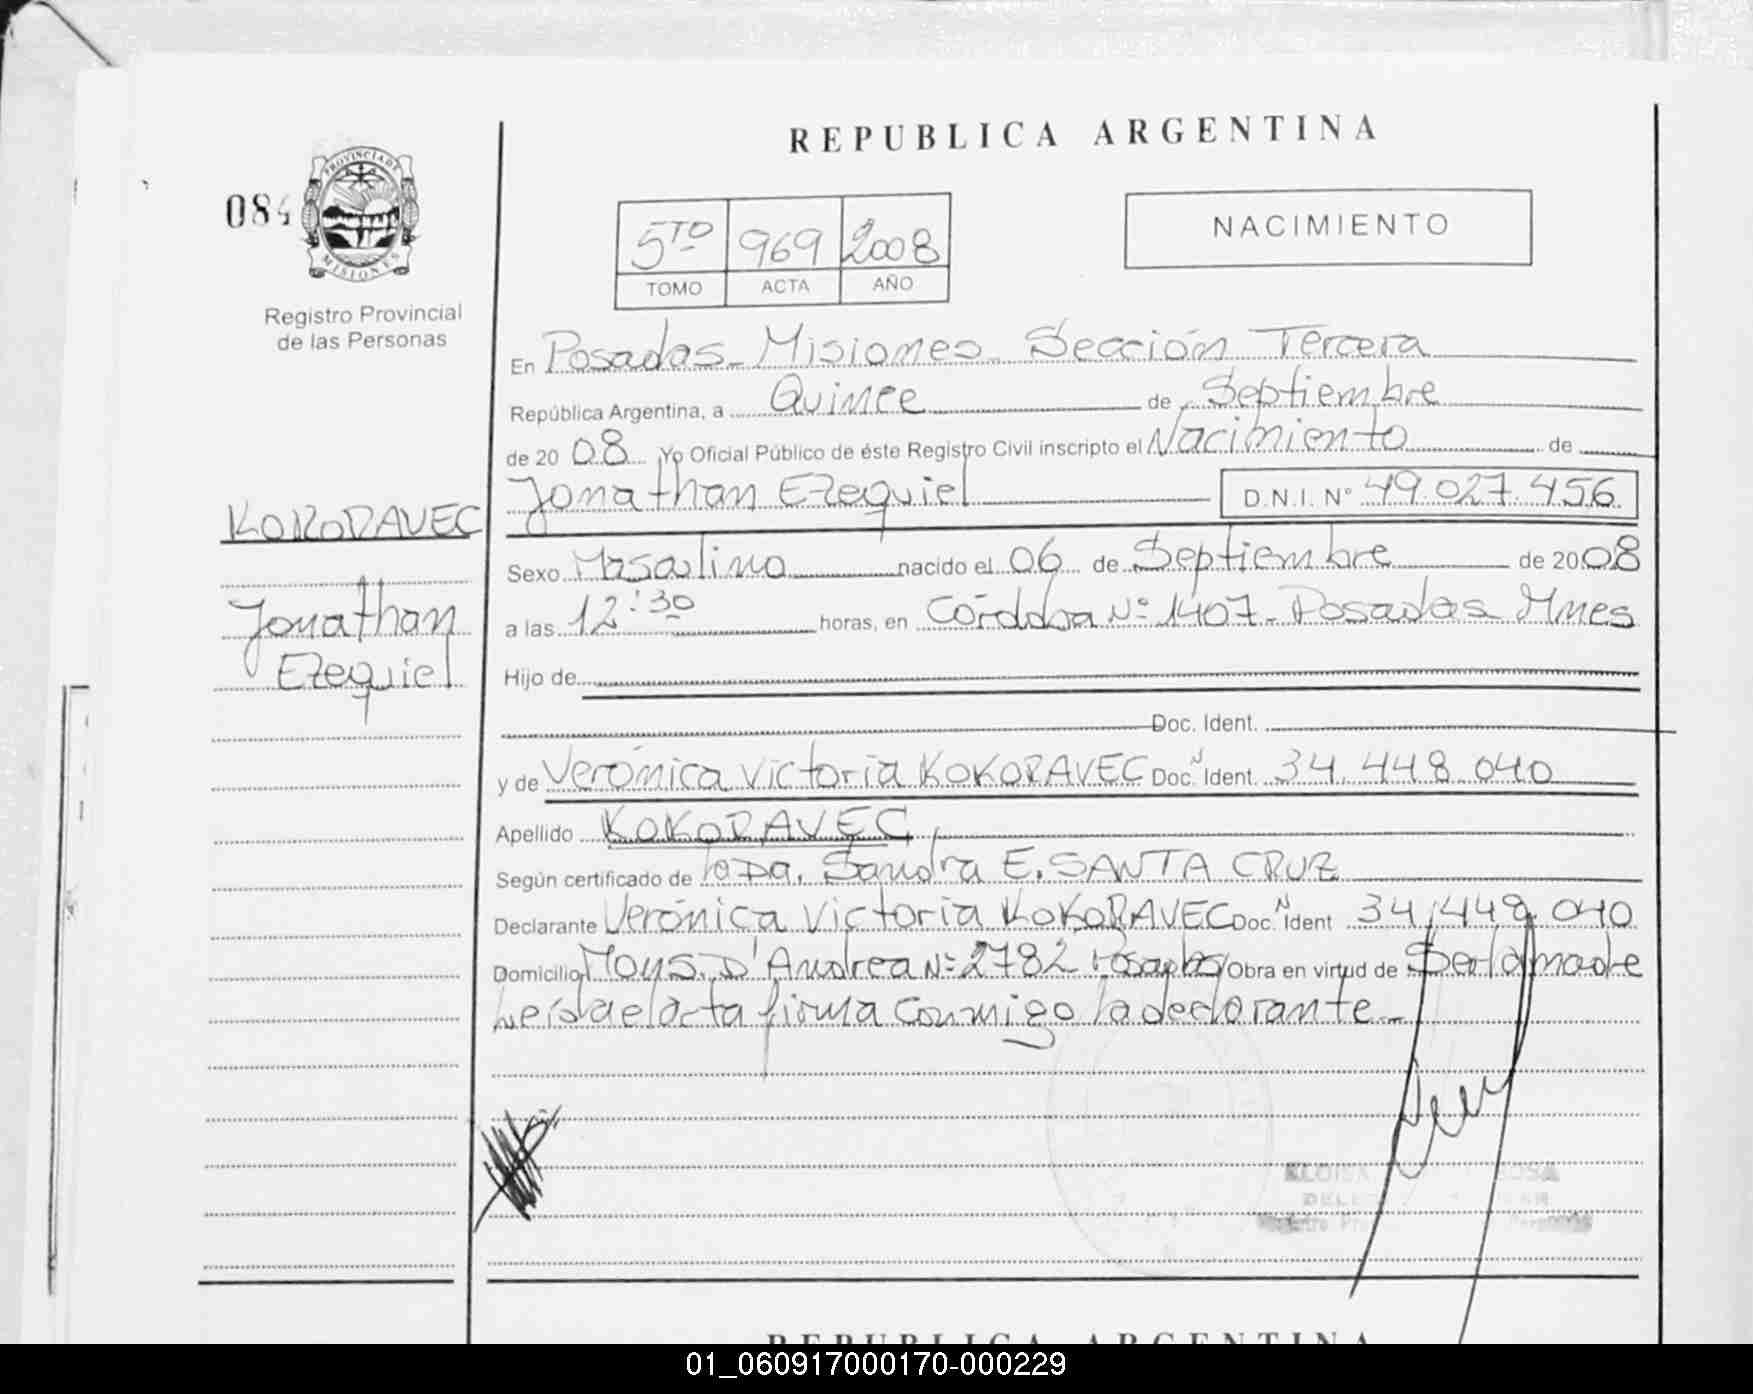 REPUBLICA ARGENTINA
084
PROVINCIA DE
MISIONES
Registro Provincial
de las Personas
5TO 969 2008
TOMO ACTA AÑO
NACIMIENTO
En Posadas - Misiones - Sección Tercera
República Argentina, a Quince de Septiembre
de 2008 Yo Oficial Público de éste Registro Civil inscripto el Nacimiento de
Jonathan Ezequiel D.N.I. Nº 49.027.456
KOKORAVEC
Jonathan
Ezequiel
Sexo Masculino nacido el 06 de Septiembre de 2008
a las 12:30 horas, en Córdoba Nº 1407 - Posadas Mnes
Hijo de
Doc. Ident.
y de Verónica Victoria KOKORAVEC Doc. Ident. 34.448.040
Apellido KOKORAVEC
Según certificado de la Da. Sandra E. SANTA CRUZ
Declarante Verónica Victoria KOKORAVEC Doc. Ident 34.448.040
Domicilio Mons. D'Andrea Nº 2782 Posadas Obra en virtud de Ser la madre
Leída el acta firma conmigo la declarante -
REPUBLICA ARGENTINA
01_060917000170-000229